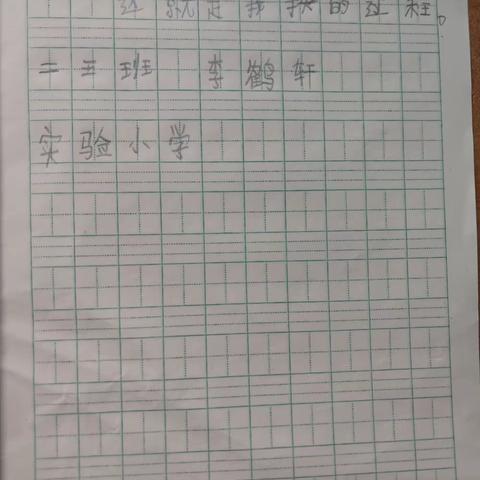 这就是我换的过程。
二三班 李鹤轩
实验小学